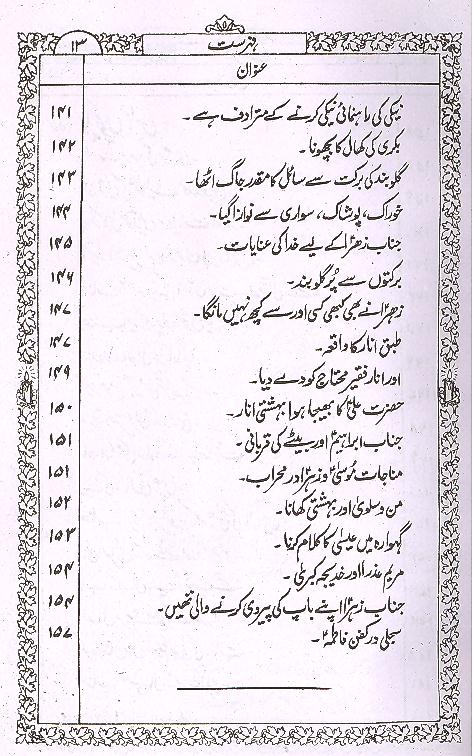 ۱۳ فہرست
عنوان
نیکی کی راہنمائی نیکی کرنے کے مترادف ہے۔ ۱۴۱
بکری کی کھال کا بچھونا۔ ۱۴۲
گلوبند کی برکت سے سائل کا مقدر جاگ اٹھا۔ ۱۴۳
خوراک، پوشاک، سواری سے نوازا گیا۔ ۱۴۴
جناب زھراؑ کے لیے خدا کی عنایات۔ ۱۴۵
برکتوں سے پُر گلوبند۔ ۱۴۶
زھراؑ نے بھی کبھی کسی اور سے کچھ نہیں مانگا۔ ۱۴۷
طبق انار کا واقعہ۔ ۱۴۷
اور انار فقیر محتاج کو دے دیا۔ ۱۴۹
حضرت علیؑ کا بھیجا ہوا بہشتی انار۔ ۱۵۰
جناب ابراہیمؑ اور بیٹے کی قربانی۔ ۱۵۱
مناجات مُوسیٰؑ و زھراؑ در محراب۔ ۱۵۱
من و سلویٰ اور بہشتی کھانا۔ ۱۵۲
گہوارہ میں عیسیٰؑ کا کلام کرنا۔ ۱۵۳
مریم عذرا اور خدیجہ کبریٰ۔ ۱۵۴
جناب زھراؑ اپنے باپ کی پیروی کرنے والی تھیں۔ ۱۵۴
سجلی در کفن فاطمہؑ۔ ۱۵۷